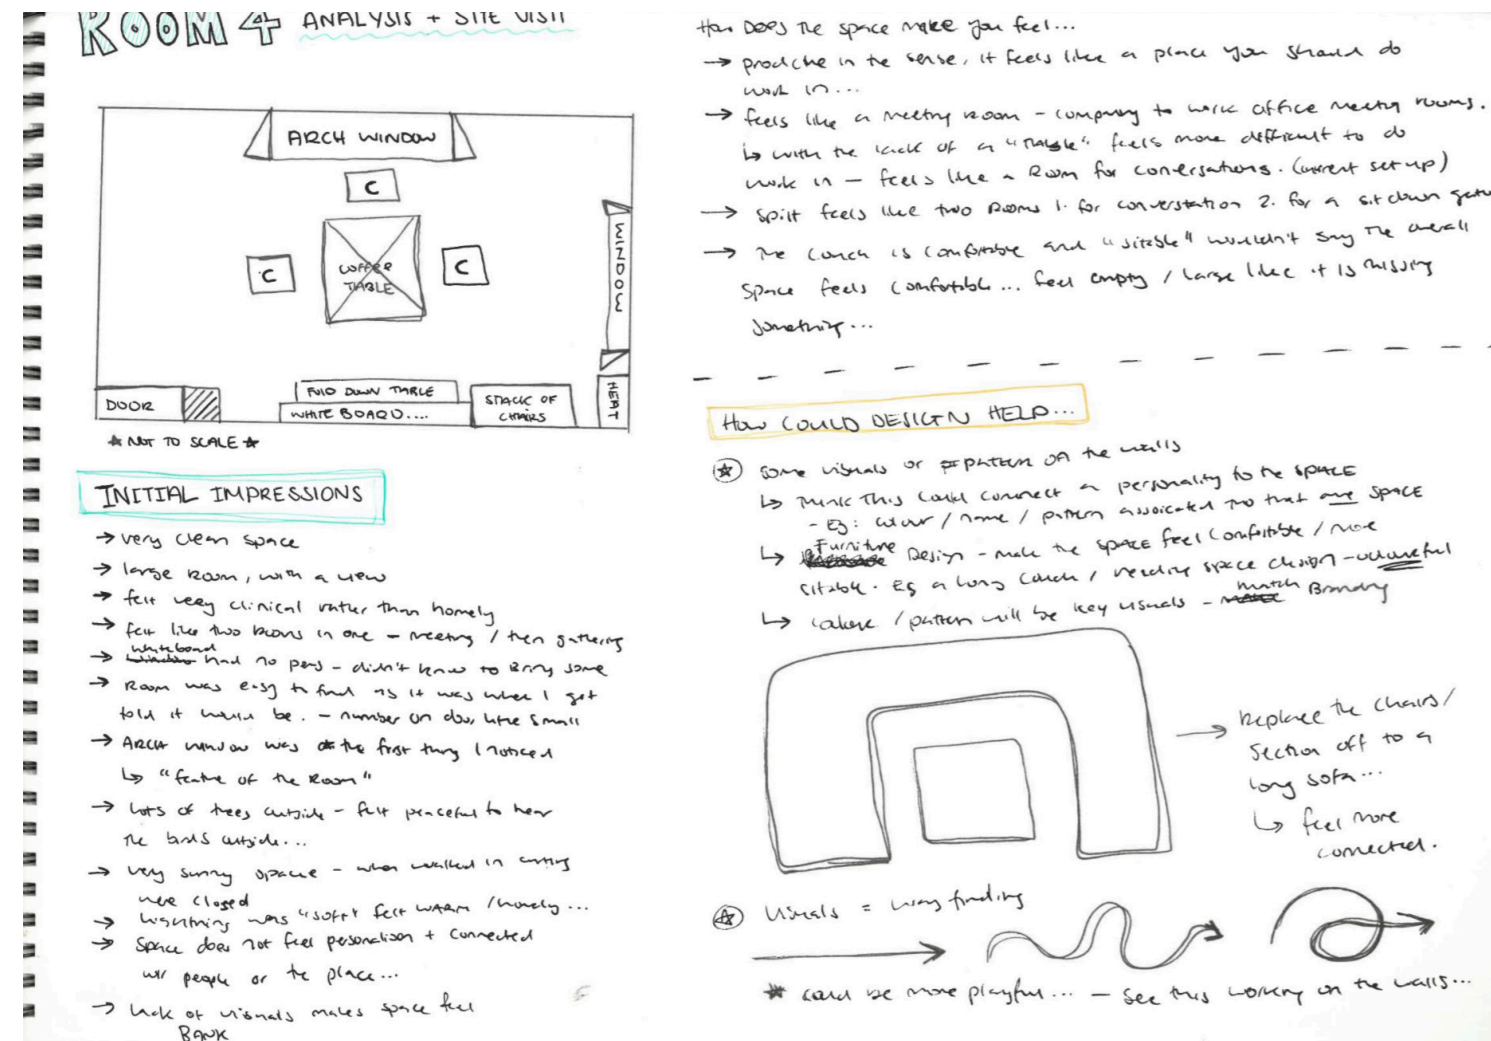 ROOM 4 ANALYSIS + SITE VISIT
ARCH WINDOW
C
C
COFFEE
TABLE
C
WINDOW
HEAT
DOOR
FOLD DOWN TABLE
WHITE BOARD....
STACK OF
CHAIRS
★ NOT TO SCALE ★
INITIAL IMPRESSIONS
→ very clean space
→ large room, with a view
→ felt very clinical rather than homely
→ felt like two rooms in one - meeting / then gathering
→ whiteboard had no pens - didn't know to bring some
→ Room was easy to find as it was where I got
told it would be. - number on door little small
→ ARCH window was the first thing I noticed
↳ "feature of the Room"
→ Lots of trees outside - felt peaceful to hear
the birds outside...
→ very sunny space - when walked in
were closed
→ was "soft" felt warm / homely...
→ Space does not feel + connected
w/ people or the place...
→ Lack of visuals makes space feel
BANK
How Does the space make you feel...
→ in the sense, it feels like a place you should do
work in...
→ feels like a meeting room - to work office meeting rooms.
↳ with the lack of a "table" feels more difficult to do
work in - feels like a Room for conversations. (current set up)
→ Split feels like two Rooms 1. for converstation 2. for a sit down
→ The couch is comfortable and "sitable" wouldn't say the overall
space feels comfortable... feel empty / large like it is missing
something...
HOW COULD DESIGN HELP...
★ some visuals or pattern on the walls
↳ think this could connect a personality to the SPACE
- Eg: colour / name / pattern to that one SPACE
↳ Furniture Design - make the SPACE feel comfortable / more
sitable. Eg a long couch / space design -
↳ / pattern will be key visuals - match Branding
→ Replace the chairs/
section off to a
long sofa...
↳ feel more
connected.
★ Visuals = way finding
★ could be more playful... - see this working on the walls...